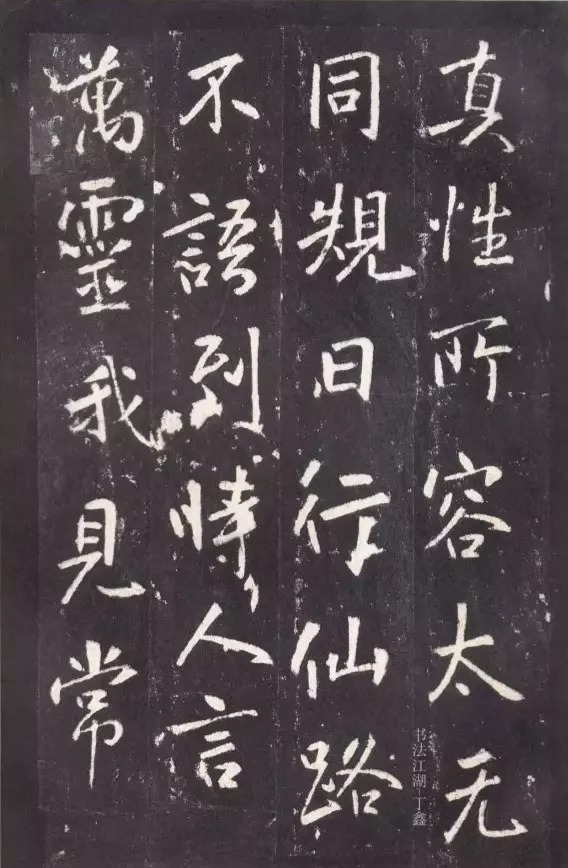 真性所容太无
同規日行仙路
不語到時人言
萬靈我見常
书法江湖 丁鑫